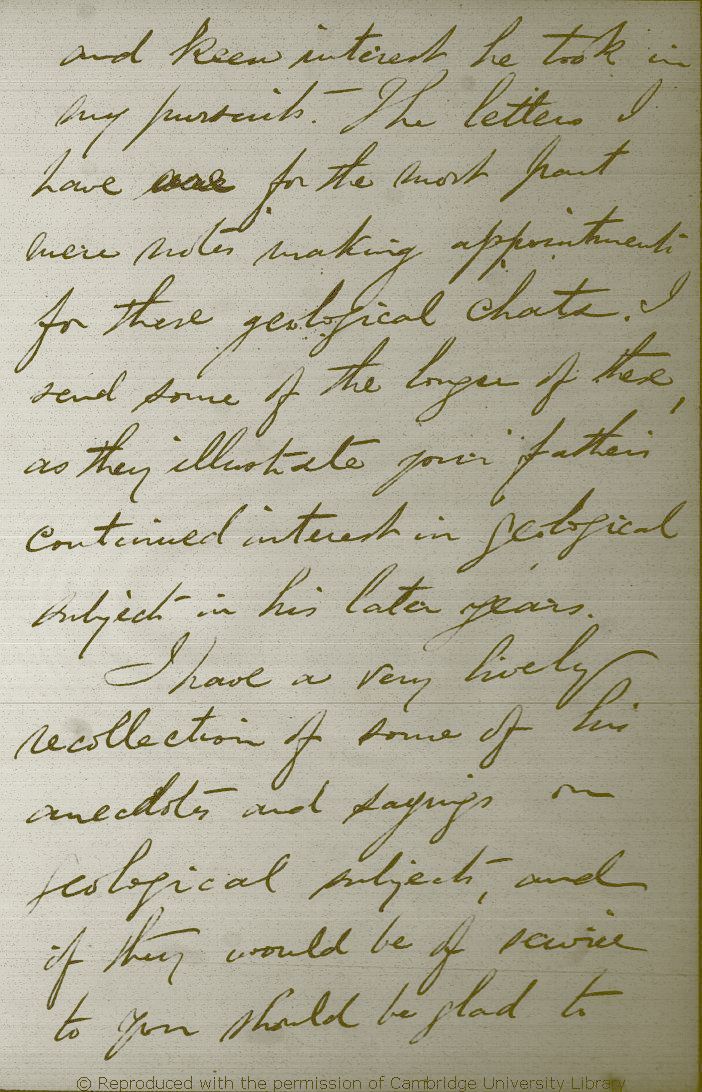 and keen interest he took in
my pursuits. The letters I
have for the most part
were notes making appointments
for these geological chats. I
send some of the longer of these,
as they illustrate your father's
continued interest in geological
subjects in his later years.
I have a very lively
recollection of some of his
anecdotes and sayings on
geological subjects, and
if they would be of service
to you should be glad to
© Reproduced with the permission of Cambridge University Library